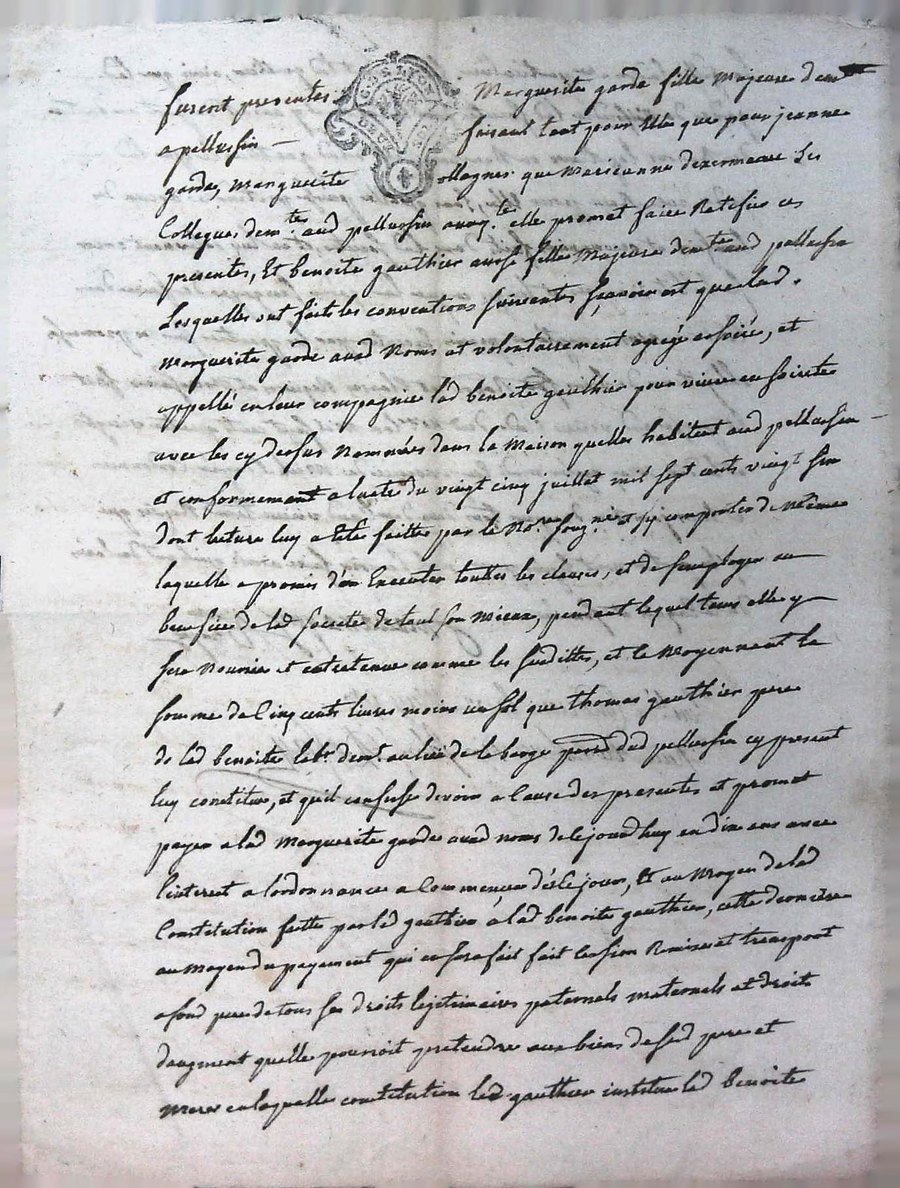 furent presentes Marguerite garde fille Majeure demt
a pellussin faisant tant pour Elle que pour jeanne
garde, Marguerite ollagner que Marieanne dezormeaux Ses
Collegues demte aud pellussin auxqtes elle promet faire Ratifier ces
presentes, Et benoite gauthier aussi fille Majeure demte aud pellussin
Lesquelles ont fait les conventions suivantes sçavoir est que lad
Marguerite garde aud Noms et volontairement agregé assosié, et
appellé en leur compagnie lad benoite gauthier pour vivre en soisiete
avec les cy dessus Nommées dans la Maison quelles habitent aud pellussin
et conformement a lacte du vingt cinq juillet mil sept cents vingt six
dont lecture luy a Eté faitte par le Nore sousgné et sy comporter de Même
laquelle a promis d'en Executer touttes les clauses, et de semployer au
benefice de lad societé de tout son Mieux, pendant lequel tems elle y
sera Nourrie et entretenue comme les susdittes, et le Moyennant la
somme de Cinq cents livres moins un sol que thomas gauthier pere
de lad benoite labr demt au lieu de la barge parsse dud pellussin cy present
luy constitue, et quil confesse devoir a Cause des presentes et promet
payer a lad Marguerite garde aud noms de cejourdhuy en dix ans avec
linterest a lordonnance a Commencer dés ce jour, Et au Moyen de lad
Constitution faitte par led gauthier a lad benoite gauthier, cette derniere
au Moyen du payement qui en sera fait fait Cession Remise et transport
a fond perdu de tous ses droits legitimaires paternels maternels et droits
daugment quelle pouroit pretendre aux biens de sesd pere et
Mere en laquelle constitution led gauthier institue lad benoite